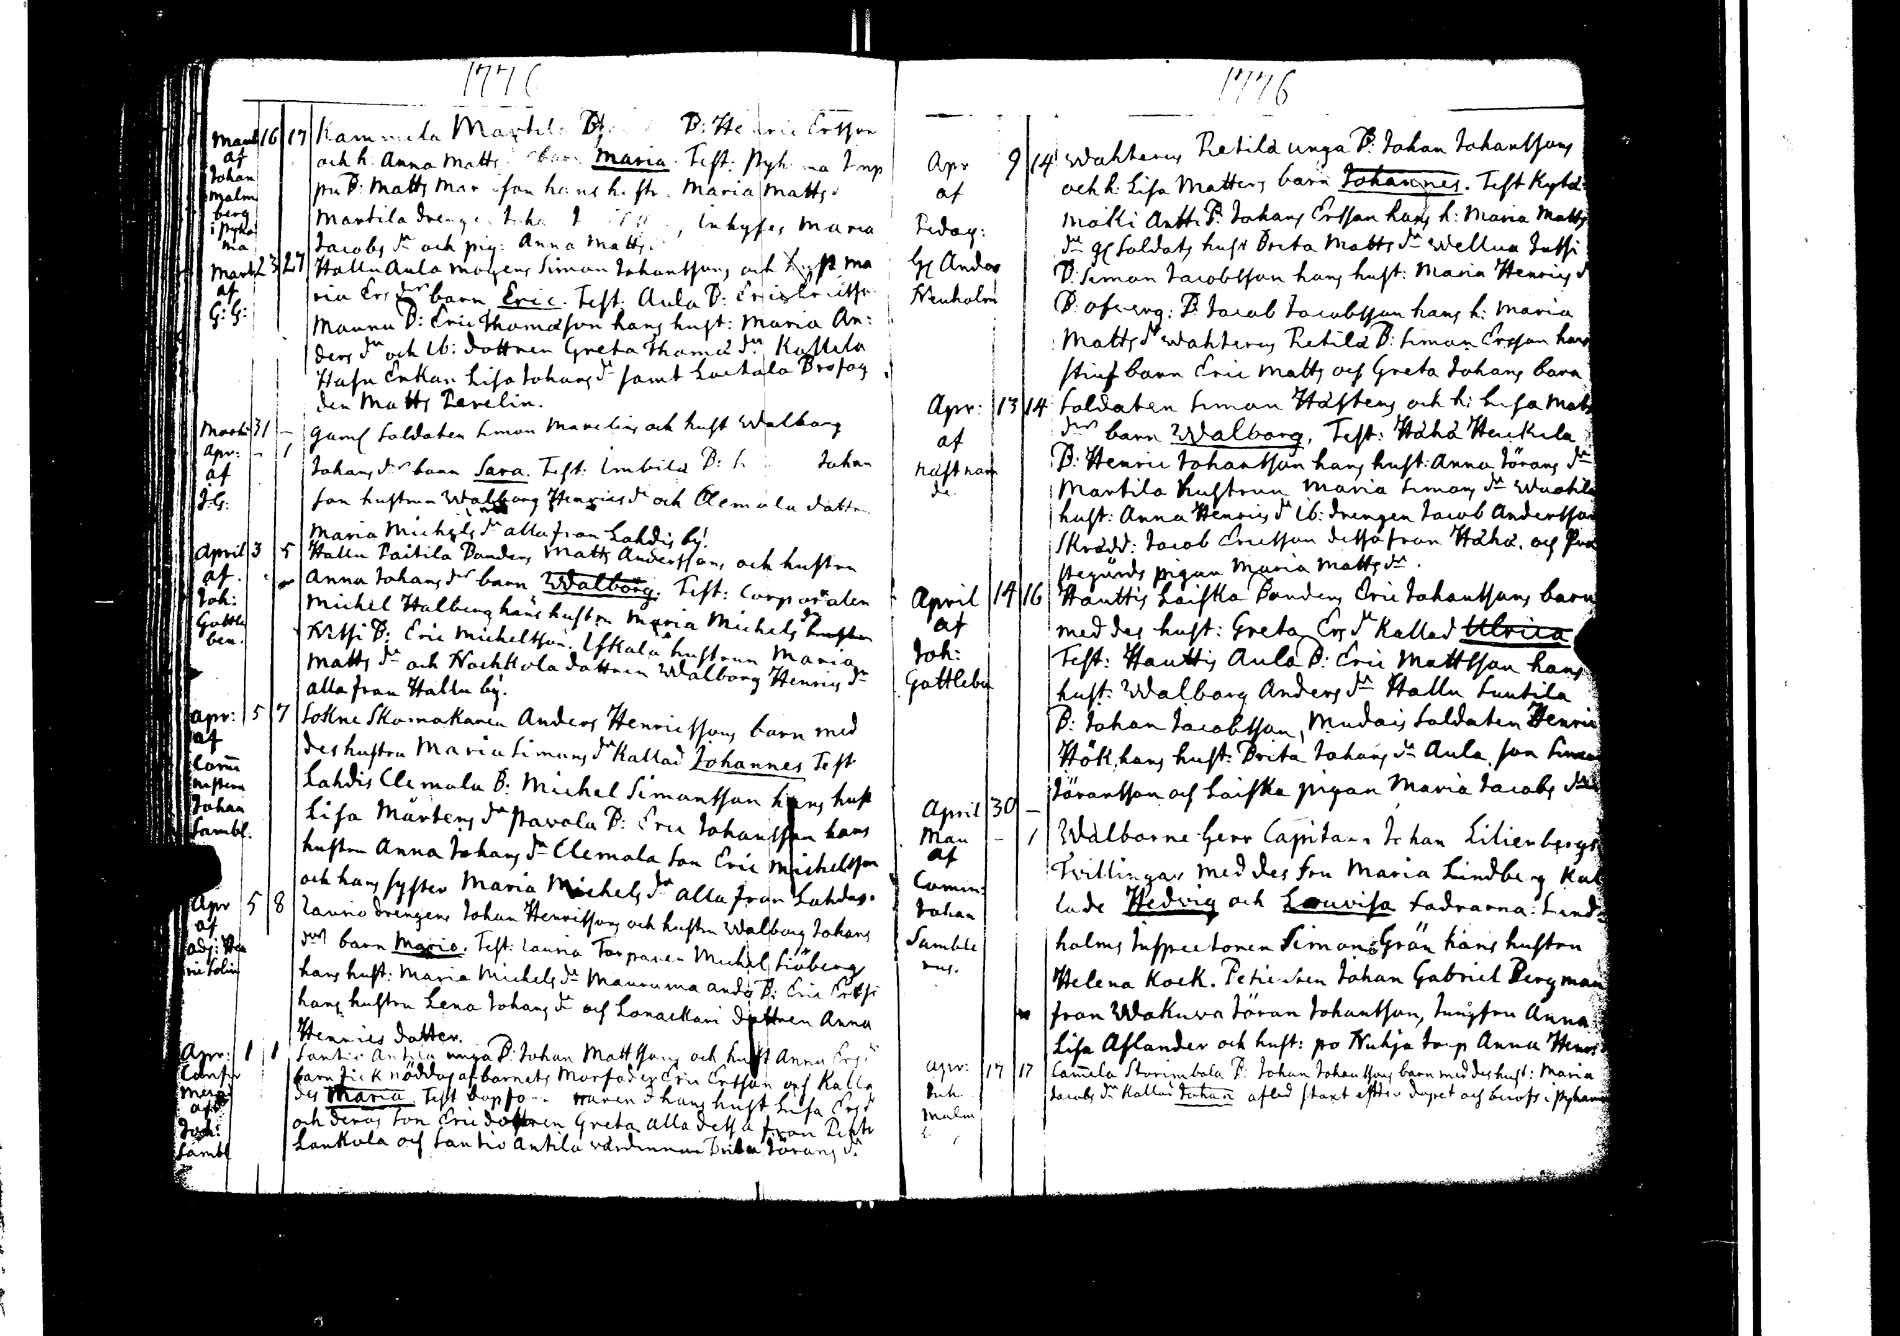 1776
Mart 16 17 Kammela Martil B: Henric Ersson
af och h. Anna Matts barn Maria. Test: Pyh ma Torp
Johan B: Matts hans hustr. Maria Matts
Malm Martila drenge Inhyses Maria
berg Jacobs dr och pig: Anna Matts
i Pyhä
ma
Mart 23 27 Hallu Aula mågens Simon Johanssons och hust Ma
af ria Ers drs barn Eric. Test: Aula B: Eric Ericsson
G: G: Mannu B: Eric Thomasson hans hust: Maria An:
ders dr och ib: dottren Greta Thomæ dr Kallela
Enkan Lisa Johans dr samt
den Matts Pavelin.
Mart: 31 – gaml Soldaten Simon Marelins och hust Walborg
Apr: – 1 Johans drs barn Sara. Test: Imbilä B: Johan
af son hustrun Walborg Henrics dr och Clemola dottr
J: G: Maria Michels dr alla från Lahdis by.
April 3 5 Hallu Paitila Bondens Matts Anderssons och hustrun
af Anna Johans drs barn Walborg. Test: Corporalen
Joh: Michel Halberg hans hustru Maria Michels dr hustrun
Gottle Kitsi B: Eric Michelsson. Iskala hustrun Maria
ben. Matts dr och Nochkola dottren Walborg Henrics dr
alla från Hallu by.
Apr: 5 7 Sokne Skomakaren Anders Henricssons barn med
af des hustru Maria Simons dr Kallad Johannes Test
Com Lahdis Clemola B: Michel Simonsson hans hust
nistern Lisa Mårtens dr Pavola B: Eric Johansson hans
Johan hustru Anna Johans dr Clemola Son Eric Michelsson
Sambl. och hans syster Maria Michels dr alla från Lahdis.
Apr 5 8 Lauriodrengens Johan Henricssons och hustru Walborg Johans
af drs barn Maria. Test: Lauria Torparen Michel Siöberg
adj: Hen hans hust: Maria Michels dr Mauruma B: Eric
ric Polin hans hustru Lena Johans dr och Lonackari dottren Anna
Henrics dotter.
Apr: 1 1 Santio Antila unga B: Johan Mattssons och hust Anna Ers drs
barn fick nöddop af barnets Morfader Eric Ersson och Kalla
des Maria. Test Dopfo hans hust Lisa Ers dr
Joh: och deras son Eric dottren Greta alla dessa från
Sambl Lankola och Santio Antila värdinnan Brita Jörans dr
1776
Apr 9 14 Wahteris Retilä unga B: Johan Johanssons
af och h: Lisa Matters barn Johannes. Test Kylä:
Pedag: matti Antti B: Johans Ersson hans h: Maria Matts
Gl Anders dr gl Soldats hust Brita Matts dr Wellua Jussi
Nenholm B: Simon Jacobsson hans hust: Maria Henrics d
B: Jacob Jacobsson hans h: Maria
Matts dr Wahteris Retilä B: Simon Ersson hans
stiuf barn Eric Matts och Greta Johans barn
Apr: 13 14 Soldaten Simon Hästens och h: Lisa Matts
af drs barn Walborg. Test: Hähä Heickilä
näst näm B: Henric Johansson hans hust: Anna Jörans dr
de. Martila hustrun Maria Simons dr
hust: Anna Henrics dr ib: drengen Jacob Andersson
Skrädd: Jacob Ericsson dessa från Hähä. och Pra
stegårds pigan Maria Matts dr.
April 14 16 Hauttis Laiska Bondens Eric Johanssons barn
af med des hust: Greta Ers dr Kallad Ulrica
Joh: Test: Hauttis Aula B: Eric Mattsson hans
Gottleben hust: Walborg Anders dr Hallu Suutila
B: Johan Jacobsson, Mudais Soldaten Henric
Hök, hans hust: Brita Johans dr Aula son Simon
Jöransson och Laiska pigan Maria Jacobs dr
April 30 –
Maij – 1 Wälborne Herr Capitain Johan Lilienbergs
af Tvillingar med des fru Maria Lindberg Kal
Comin: lade Hedvig och Lovisa Fadrarna: Lind:
Johan holms Inspectoren Simon Grön hans hustru
Samble Helena Kock. Johan Gabriel Bergman
rus. från Wakuva Jöran Johansson, Jungfru Anna
Lisa Aflander och hust: på Nuhja torp Anna Henrs
Apr: 17 17 Camela Storimbola B: Johan Johanssons barn med des hust: Maria
Joh Jacobs dr Kallad Johan afled straxt efter dopet och i Pyhäma
Malm